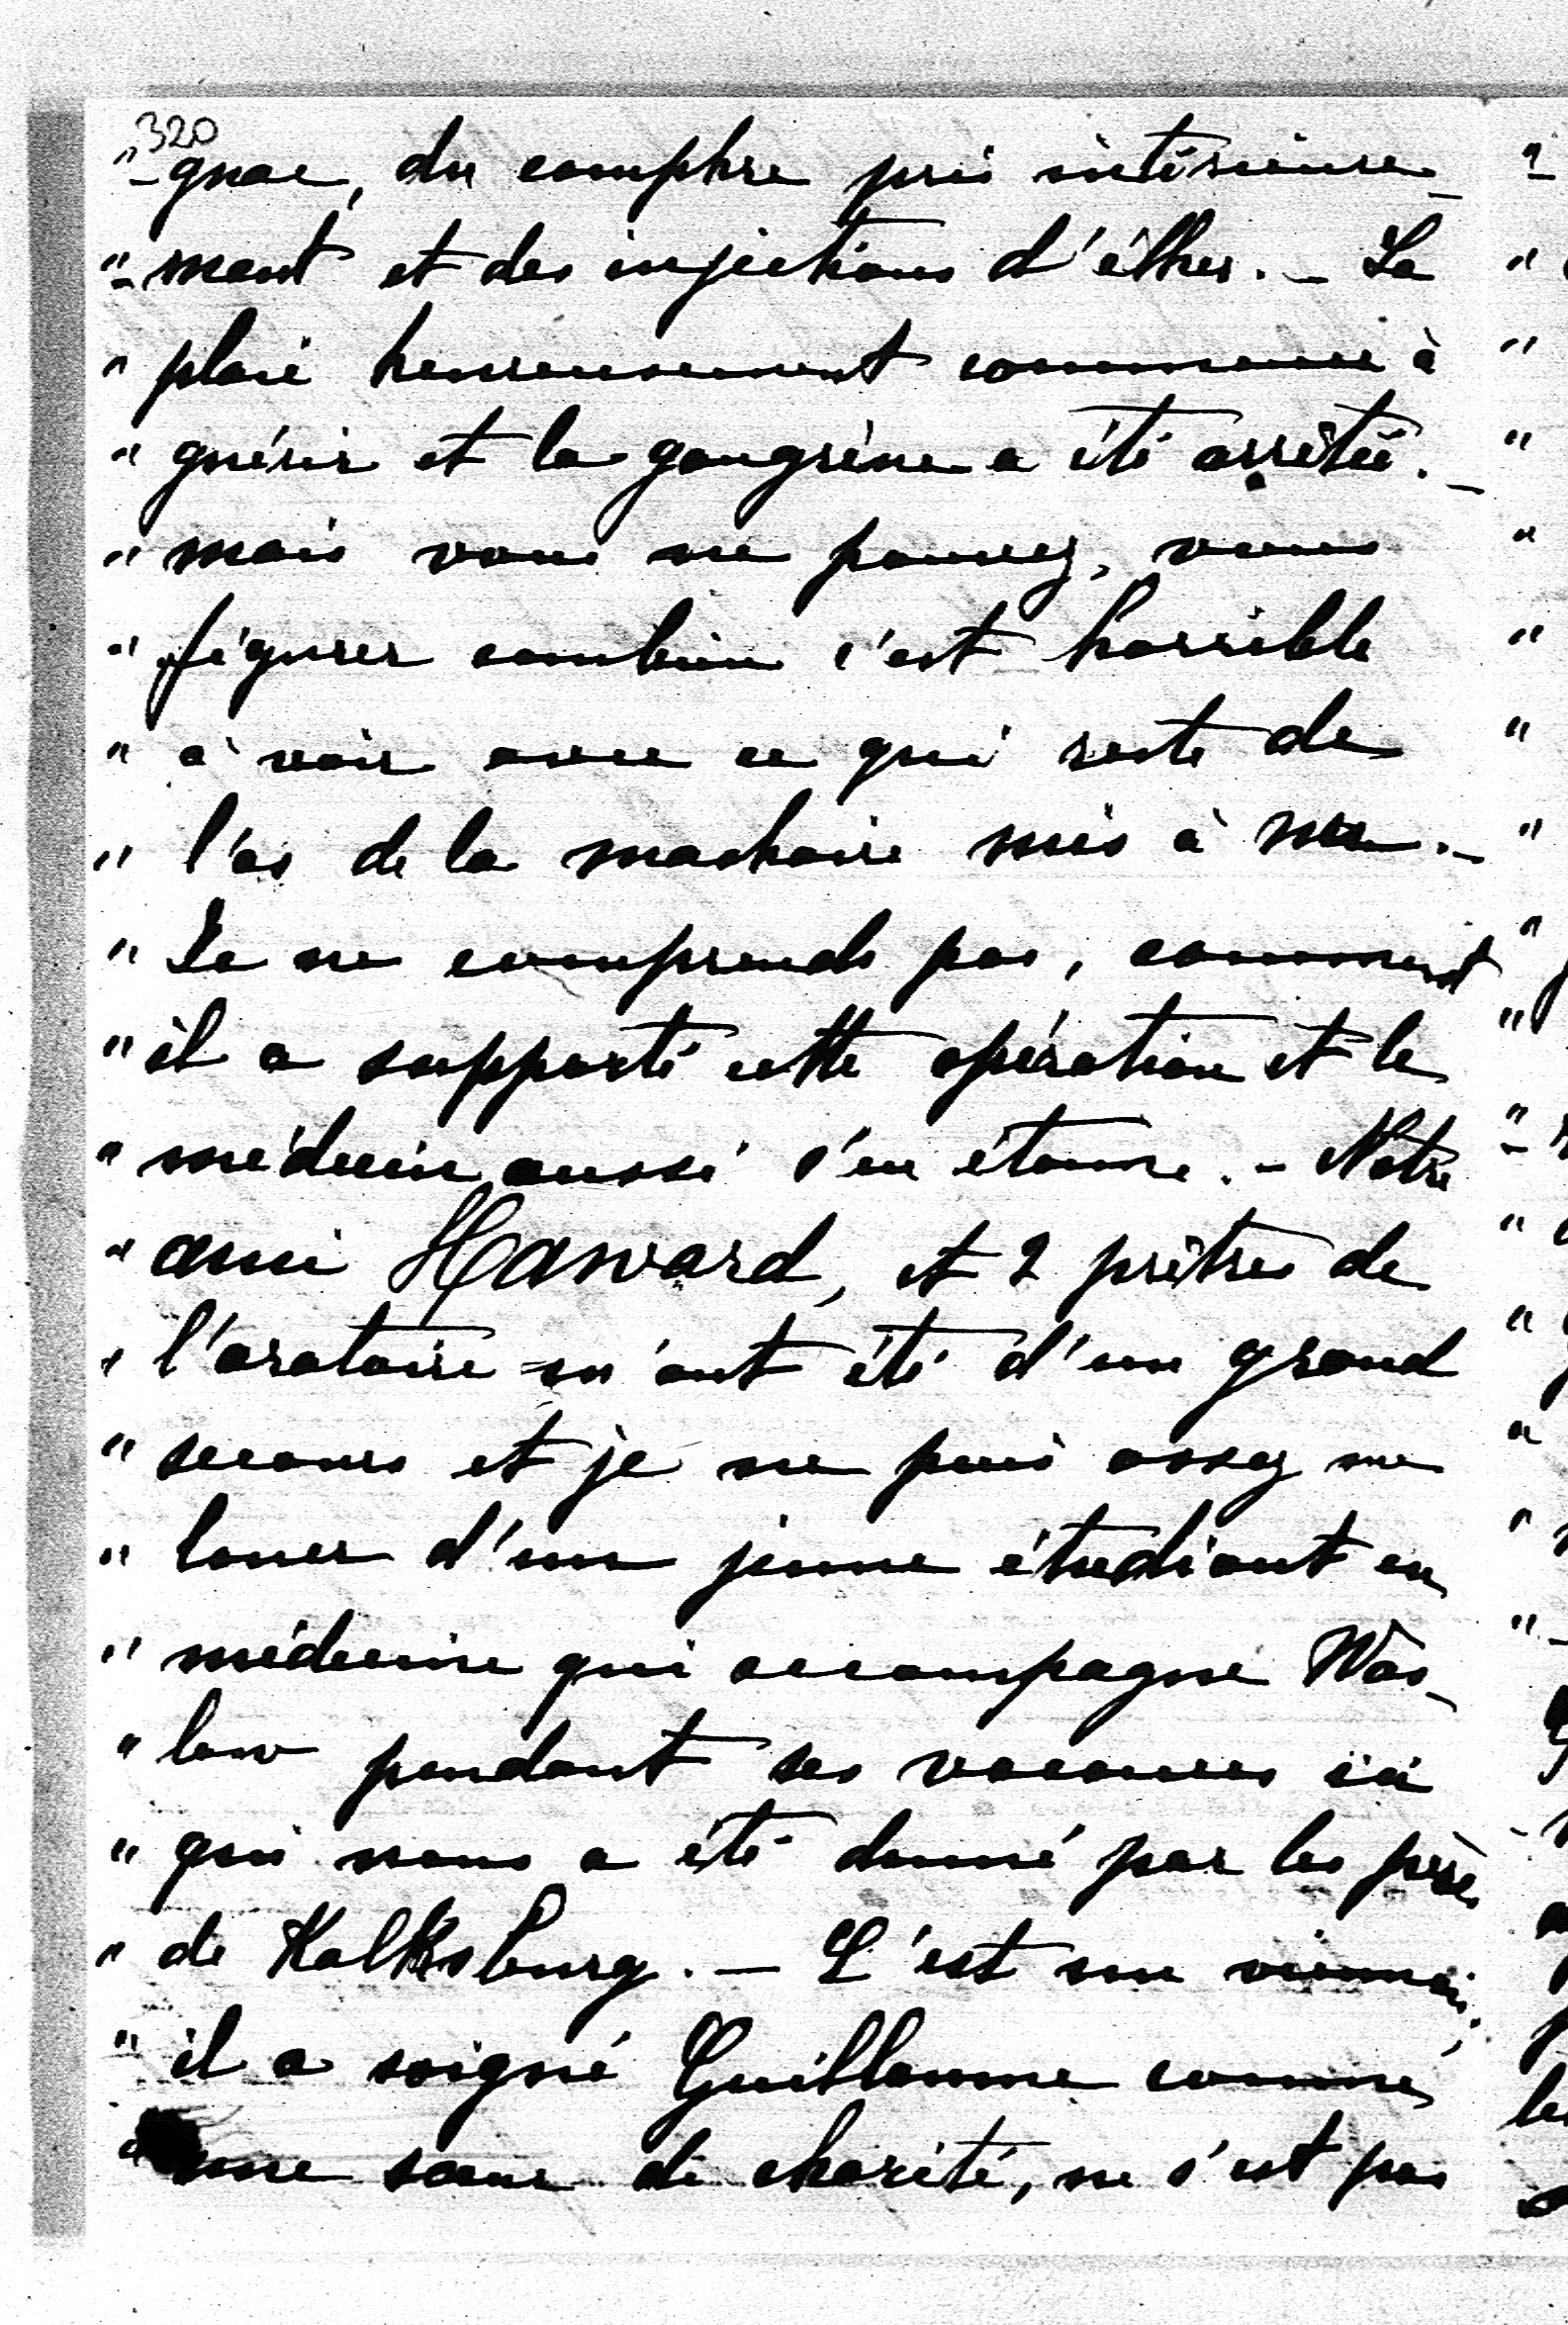 320
"-gnac, du camphre pris intérieure-
"-ment et des injections d'éther. - La
" plaie heureusement commence à
" guérir et la gangrène a été arrêtée. -
" mais vous ne pouvez, vous
" figurer combien c'est horrible
" à voir avec ce qui reste de
" l'os de la machoire mis à nu. -
" Je ne comprends pas, comment
" il a supporté cette opération et le
" médecin aussi s'en étonne. - Notre
" ami Haward, et 2 prêtres de
" l'oratoire m'ont été d'un grand
" secours et je ne puis assez me
" louer d'un jeune étudiant en
" médecine qui accompagne Was-
" law pendant ses vacances ici
" qui nous a été donné par les pères
" de Kalksburg. - C'est un viennois,
" il a soigné Guillaume comme
" une soeur de charité, ne s'est pas